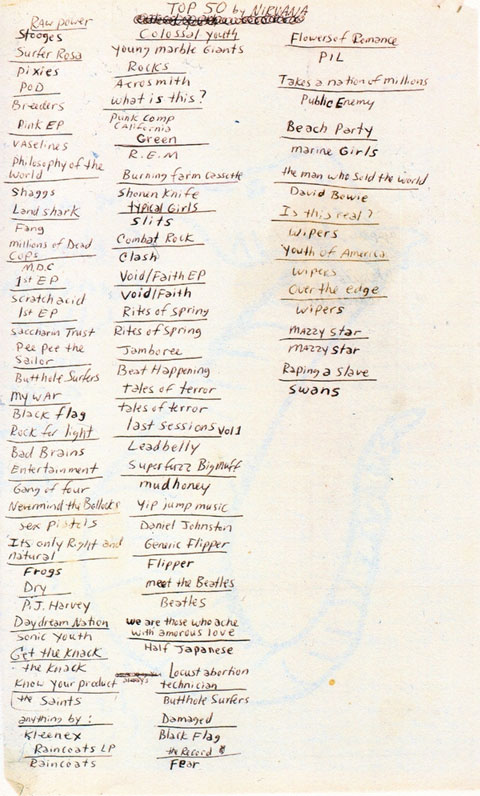 TOP 50 by NIRVANA
Raw power
Stooges
Surfer Rosa
Pixies
POD
Breeders
Pink EP
Vaselines
Philosophy of the
World
Shaggs
Land shark
Fang
millions of Dead
Cops
M.D.C
1st EP
Scratch acid
1st EP
Saccharin Trust
Pee pee the
Sailor
Butthole Surfers
My wAr
Black flag
Rock for light
Bad Brains
Entertainment
Gang of four
Nevermind the Bollocks
sex pistols
Its only Right and
natural
Frogs
Dry
P.J. Harvey
Daydream Nation
Sonic youth
Get the Knack
the Knack
Know your product
the Saints
anything by:
Kleenex
Raincoats LP
Raincoats
Colossal youth
young marble Giants
Rocks
Aerosmith
what is this?
Punk comp
California
Green
R.E.M
Burning farm cassette
Shonen Knife
typical Girls
Slits
Combat Rock
Clash
Void/Faith EP
Void/Faith
Rites of Spring
Rites of Spring
Jamboree
Beat Happening
tales of terror
tales of terror
last sessions vol 1
Leadbelly
Superfuzz Bigmuff
mudhoney
Yip jump music
Daniel Johnston
Generic Flipper
Flipper
meet the Beatles
Beatles
we are those who ache
with amorous love
Half Japanese
Locust abortion
technician
Butthole Surfers
Damaged
Black Flag
the Record
Fear
Flowers of Romance
PIL
Takes a nation of millions
Public Enemy
Beach Party
marine Girls
the man who sold the world
David Bowie
Is this real?
Wipers
Youth of America
wipers
Over the edge
wipers
mAzzy Star
mAzzy Star
Raping a Slave
Swans